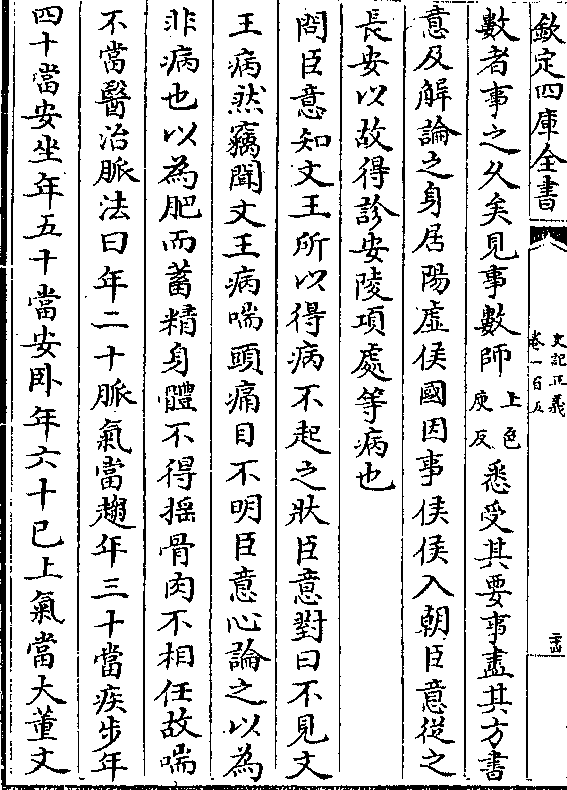 欽定四庫全書
史記正義
卷一百五
二十四
數者事之久矣見事數師上色庾反悉受其要事盡其方書
意及解論之身居陽虛侯國因事侯侯入朝臣意從之
長安以故得診安陵項處等病也
問臣意知文王所以得病不起之狀臣意對曰不見文
王病然竊聞文王病喘頭痛目不明臣意心論之以為
非病也以為肥而蓄精身體不得揺骨肉不相任故喘
不當醫治脈法曰年二十脈氣當趨年三十當疾步年
四十當安坐年五十當安卧年六十已上氣當大董文